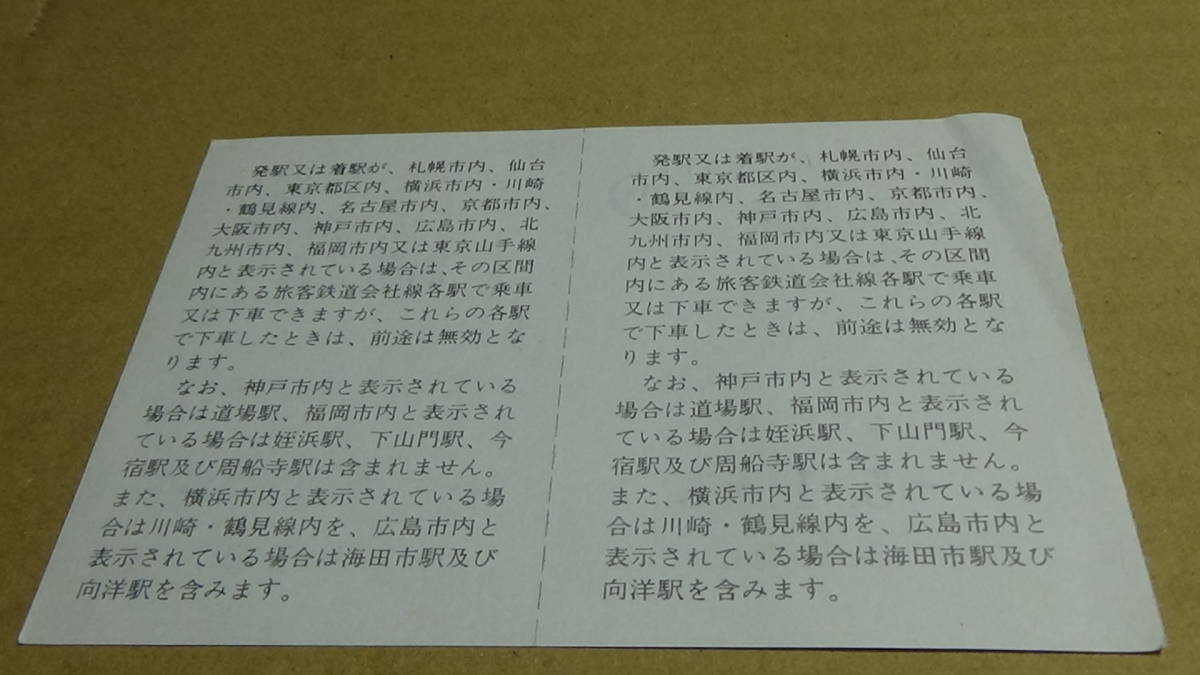 発駅又は着駅が、札幌市内、仙台
市内、東京都区内、横浜市内・川崎
・鶴見線内、名古屋市内、京都市内、
大阪市内、神戸市内、広島市内、北
九州市内、福岡市内又は東京山手線
内と表示されている場合は、その区間
内にある旅客鉄道会社線各駅で乗車
又は下車できますが、これらの各駅
で下車したときは、前途は無効とな
ります。
なお、神戸市内と表示されている
場合は道場駅、福岡市内と表示され
ている場合は姪浜駅、下山門駅、今
宿駅及び周船寺駅は含まれません。
また、横浜市内と表示されている場
合は川崎・鶴見線内を、広島市内と
表示されている場合は海田市駅及び
向洋駅を含みます。
発駅又は着駅が、札幌市内、仙台
市内、東京都区内、横浜市内・川崎
・鶴見線内、名古屋市内、京都市内、
大阪市内、神戸市内、広島市内、北
九州市内、福岡市内又は東京山手線
内と表示されている場合は、その区間
内にある旅客鉄道会社線各駅で乗車
又は下車できますが、これらの各駅
で下車したときは、前途は無効とな
ります。
なお、神戸市内と表示されている
場合は道場駅、福岡市内と表示され
ている場合は姪浜駅、下山門駅、今
宿駅及び周船寺駅は含まれません。
また、横浜市内と表示されている場
合は川崎・鶴見線内を、広島市内と
表示されている場合は海田市駅及び
向洋駅を含みます。